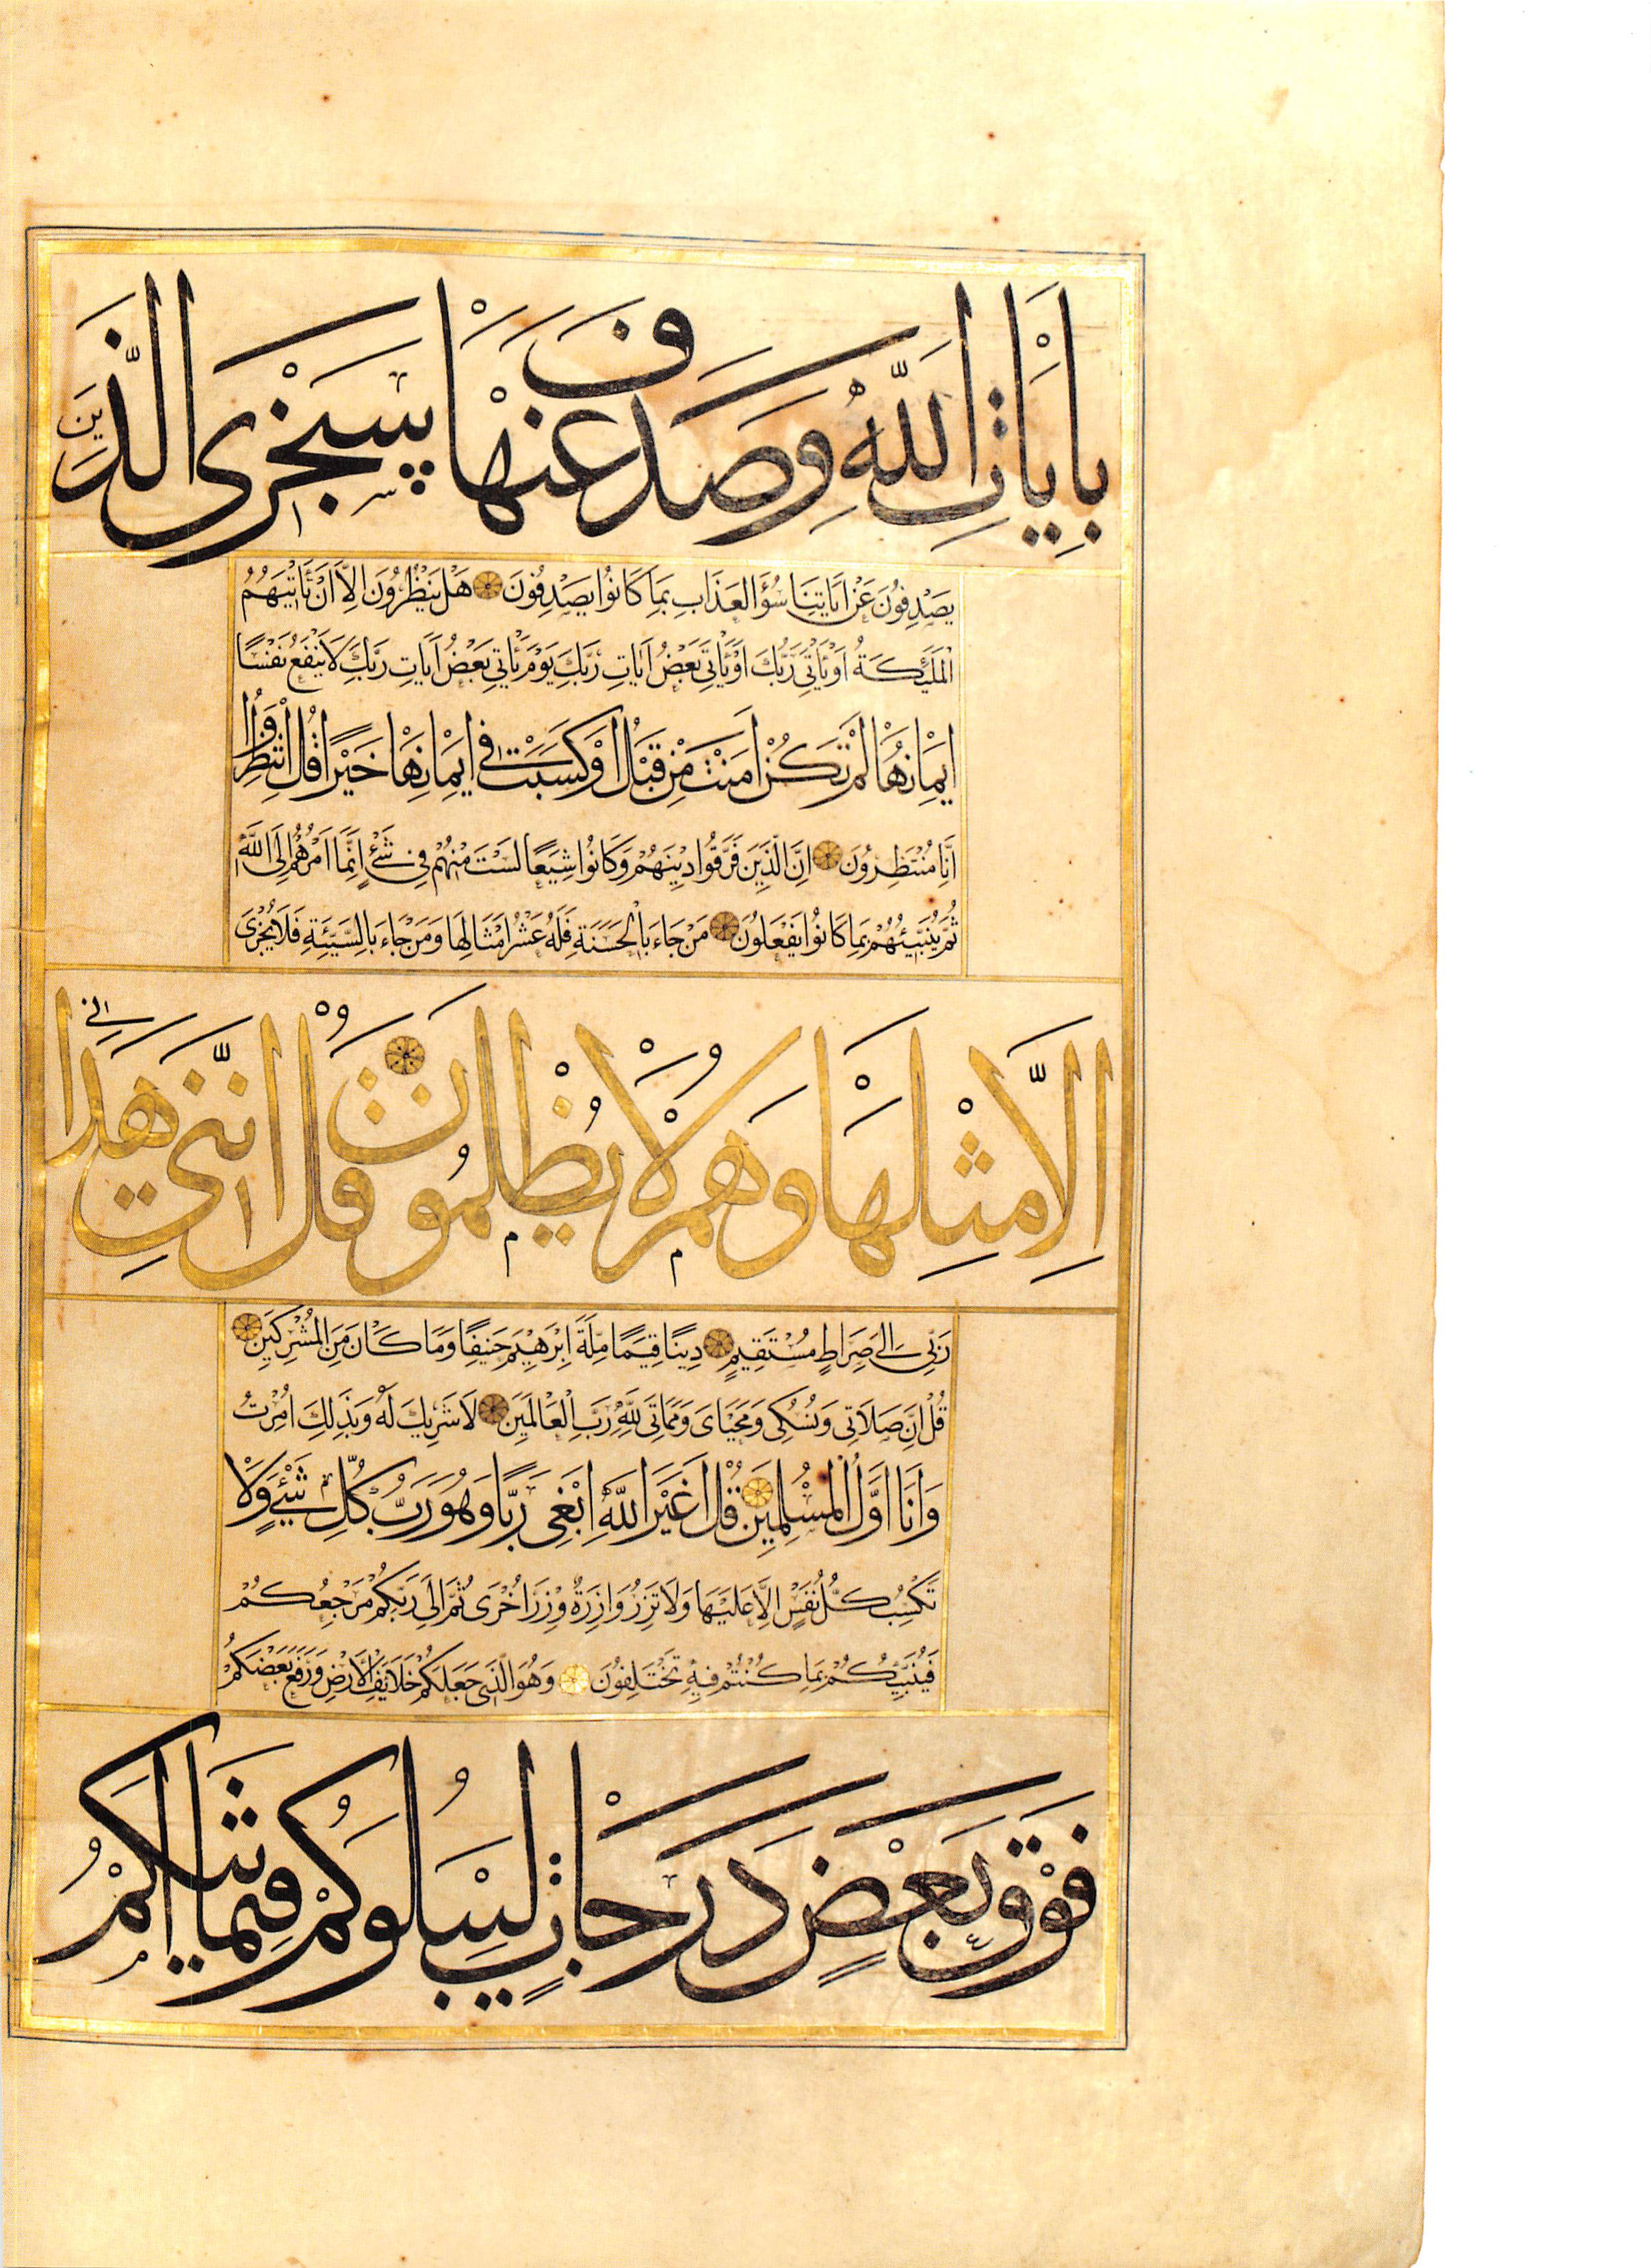 بِاٰيَاتِ اللّٰهِ وَصَدَفَ عَنْهَا سَنَجْزِى الَّذِينَ
يَصْدِفُونَ عَنْ اٰيَاتِنَا سُوٓءَ الْعَذَابِ بِمَا كَانُوا يَصْدِفُونَ هَلْ يَنْظُرُونَ اِلَّا اَنْ تَأْتِيَهُمُ
الْمَلٰٓئِكَةُ اَوْ يَأْتِىَ رَبُّكَ اَوْ يَأْتِىَ بَعْضُ اٰيَاتِ رَبِّكَ يَوْمَ يَأْتِى بَعْضُ اٰيَاتِ رَبِّكَ لَا يَنْفَعُ نَفْسًا
اِيمَانُهَا لَمْ تَكُنْ اٰمَنَتْ مِنْ قَبْلُ اَوْ كَسَبَتْ فِى اِيمَانِهَا خَيْرًا قُلِ انْتَظِرُوا
اِنَّا مُنْتَظِرُونَ اِنَّ الَّذِينَ فَرَّقُوا دِينَهُمْ وَكَانُوا شِيَعًا لَسْتَ مِنْهُمْ فِى شَىْءٍ اِنَّمَا اَمْرُهُمْ اِلَى اللّٰهِ
ثُمَّ يُنَبِّئُهُمْ بِمَا كَانُوا يَفْعَلُونَ مَنْ جَاءَ بِالْحَسَنَةِ فَلَهُ عَشْرُ اَمْثَالِهَا وَمَنْ جَاءَ بِالسَّيِّئَةِ فَلَا يُجْزٰى
اِلَّا مِثْلَهَا وَهُمْ لَا يُظْلَمُونَ قُلْ اِنَّنِى هَدٰانِى
رَبِّى اِلٰى صِرَاطٍ مُسْتَقِيمٍ دِينًا قِيَمًا مِلَّةَ اِبْرٰهِيمَ حَنِيفًا وَمَا كَانَ مِنَ الْمُشْرِكِينَ
قُلْ اِنَّ صَلَاتِى وَنُسُكِى وَمَحْيَاىَ وَمَمَاتِى لِلّٰهِ رَبِّ الْعَالَمِينَ لَا شَرِيكَ لَهُ وَبِذٰلِكَ اُمِرْتُ
وَاَنَا اَوَّلُ الْمُسْلِمِينَ قُلْ اَغَيْرَ اللّٰهِ اَبْغِى رَبًّا وَهُوَ رَبُّ كُلِّ شَىْءٍ وَلَا
تَكْسِبُ كُلُّ نَفْسٍ اِلَّا عَلَيْهَا وَلَا تَزِرُ وَازِرَةٌ وِزْرَ اُخْرٰى ثُمَّ اِلٰى رَبِّكُمْ مَرْجِعُكُمْ
فَيُنَبِّئُكُمْ بِمَا كُنْتُمْ فِيهِ تَخْتَلِفُونَ وَهُوَ الَّذِى جَعَلَكُمْ خَلَائِفَ الْاَرْضِ وَرَفَعَ بَعْضَكُمْ
فَوْقَ بَعْضٍ دَرَجَاتٍ لِيَبْلُوَكُمْ فِيمَا اٰتٰيكُمْ